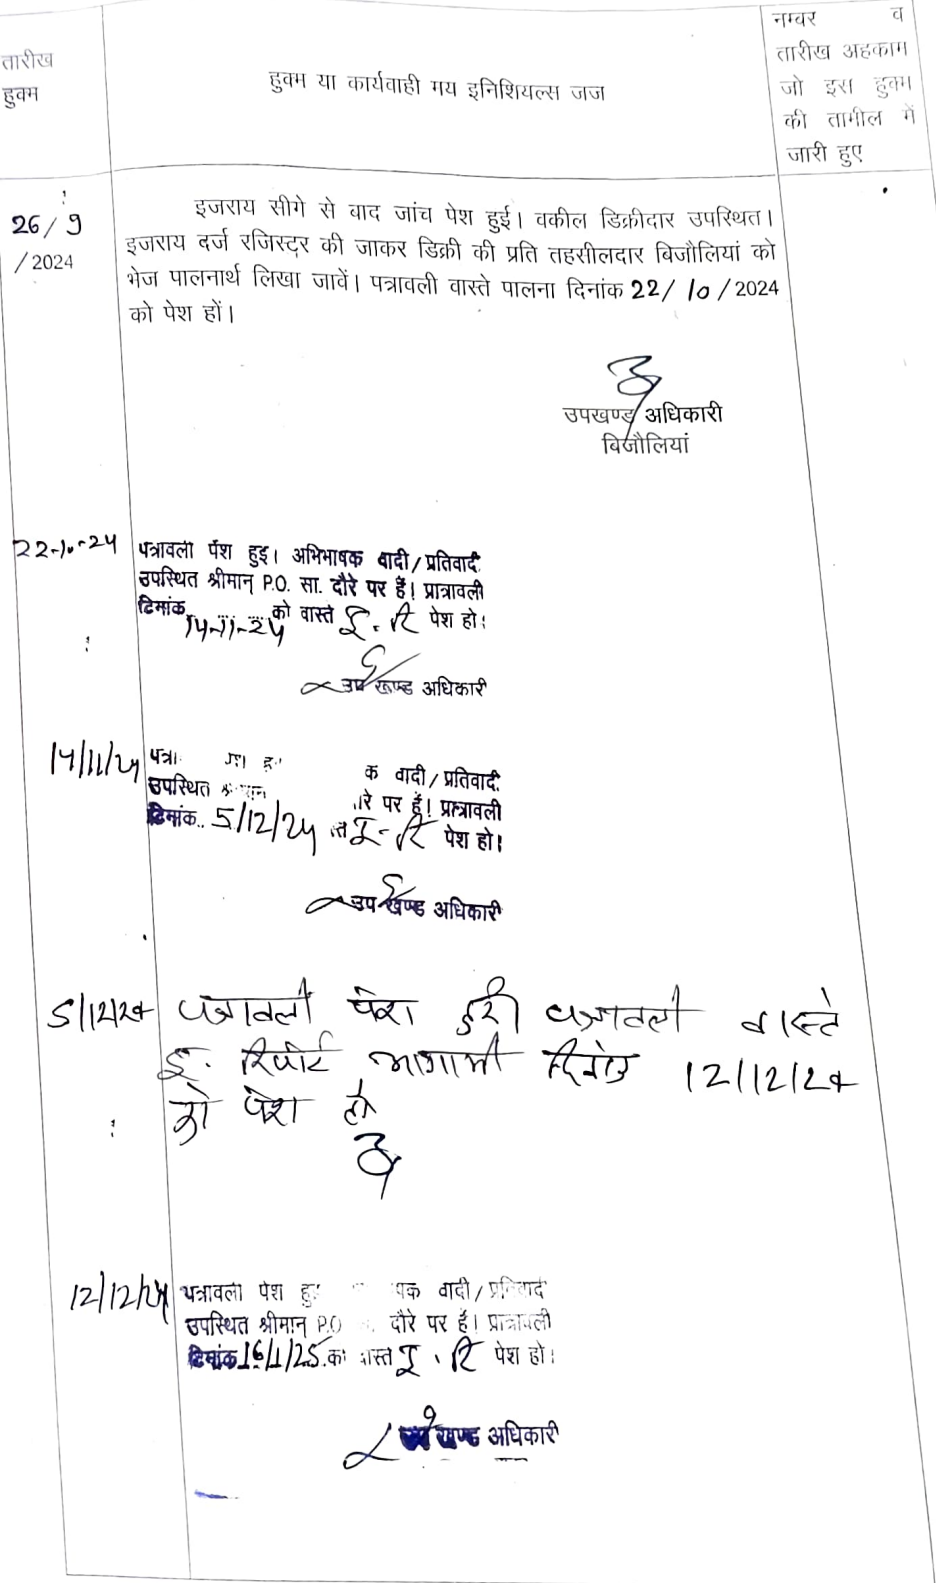 तारीख
हुक्म
हुक्म या कार्यवाही मय इनिशियल्स जज
नम्बर व
तारीख अहकाम
जो इस हुक्म
की तामील में
जारी हुए
26/9
/2024
इजराय सीगे से बाद जांच पेश हुई। वकील डिक्रीदार उपस्थित।
इजराय दर्ज रजिस्ट्रर की जाकर डिक्री की प्रति तहसीलदार बिजौलियां को
भेज पालनार्थ लिखा जावें। पत्रावली वास्ते पालना दिनांक 22/10/2024
को पेश हों।
उपखण्ड अधिकारी
बिजौलियां
22-10-24
पत्रावली पेश हुइ। अभिभाषक वादी/प्रतिवादी
उपस्थित श्रीमान् P.O. सा. दौरे पर हैं। प्रात्रावली
दिनांक 14-11-24 को वास्ते इ. रि पेश हो।
उप खण्ड अधिकारी
14/11/24
पत्रा क वादी/प्रतिवादी
उपस्थित रे पर हैं! प्रात्रावली
दिनांक.. 5/12/24 इ- रि पेश हो।
उप खण्ड अधिकारी
5/12/24
पत्रावली पेश हुयी पत्रावली वास्ते
इ. रिपोर्ट आगामी दिनांक 12/12/24
को पेश हो
12/12/24
पत्रावली पेश हु षक वादी/प्रतिवादी
उपस्थित श्रीमान् P.O दौरे पर हैं। प्रात्रावली
दिनांक 16/1/25 को वास्ते इ. रि पेश हो।
उप खण्ड अधिकारी